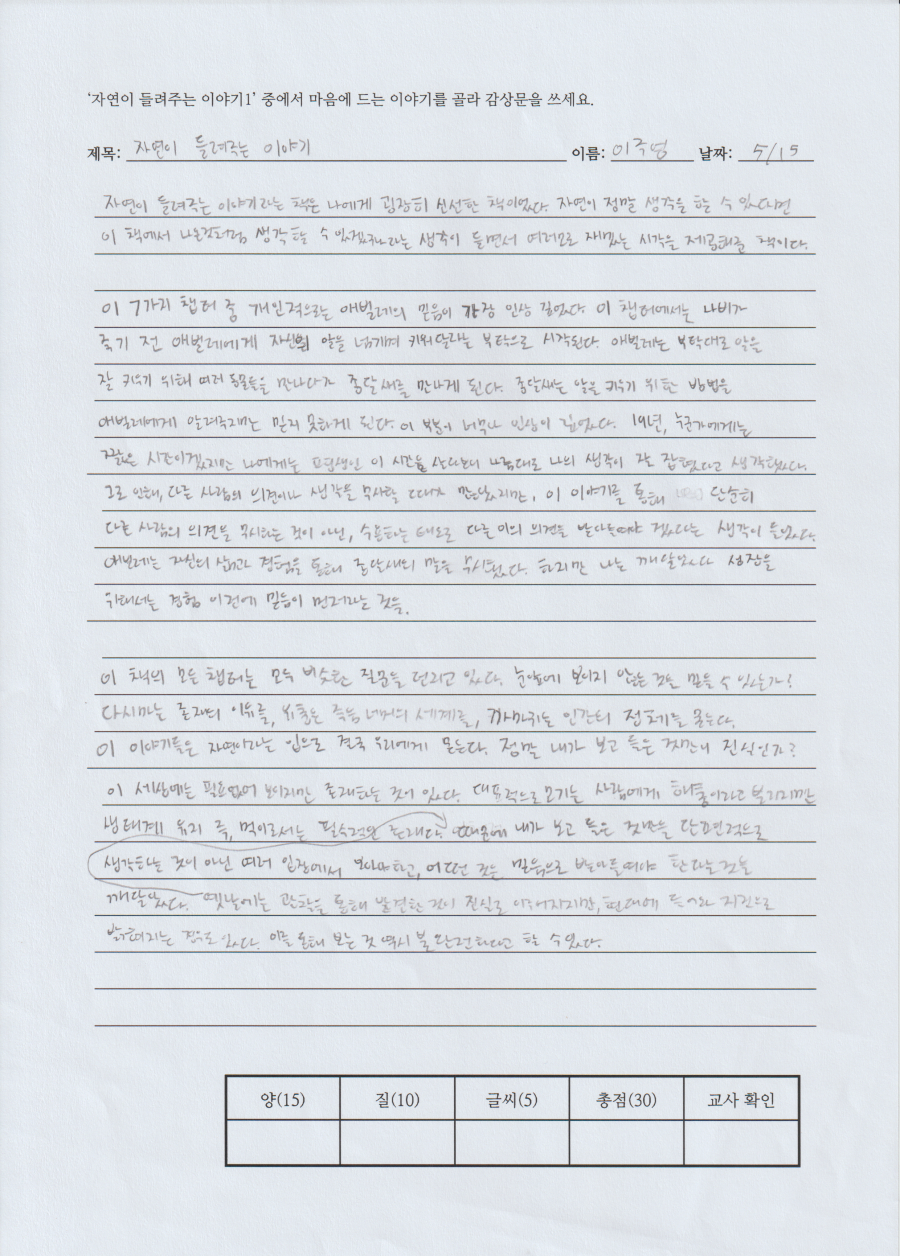 '자연이 들려주는 이야기1' 중에서 마음에 드는 이야기를 골라 감상문을 쓰세요.
제목: 자연이 들려주는 이야기 이름: 이주영 날짜: 5/15
자연이 들려주는 이야기라는 책은 나에게 굉장히 신선한 책이었다. 자연이 정말 생각을 할 수 있다면
이 책에서 나온것처럼 생각할 수 있겠구나라는 생각이 들면서 여러모로 재밌는 시각을 제공해준 책이다.
이 7가지 챕터 중 개인적으로는 애벌레의 믿음이 가장 인상 깊었다. 이 챕터에서는 나비가
죽기 전 애벌레에게 자신의 알을 넘기며 키워달라는 부탁으로 시작된다. 애벌레는 부탁대로 알을
잘 키우기 위해 여러 동물들을 만나다가 종달새를 만나게 된다. 종달새는 알을 키우기 위한 방법을
애벌레에게 알려주지만 믿지 못하게 된다. 이 부분이 너무나 인상이 깊었다. 19년, 누군가에게는
짧은 시간이겠지만 나에게는 평생인 이 시간을 살다보니 나름대로 나의 생각이 잘 잡혔다고 생각했다.
그로 인해, 다른 사람의 의견이나 생각을 무시할 때가 많았지만, 이 이야기를 통해 단순히
다른 사람의 의견을 무시하는 것이 아닌, 수용하는 태도로 다른 이의 의견을 받아들여야 겠다는 생각이 들었다.
애벌레는 자신의 삶과 경험을 통해 종달새의 말을 무시했다. 하지만 나는 깨달았다 성장을
위해서는 경험 이전에 믿음이 먼저라는 것을.
이 책의 모든 챕터는 모두 비슷한 질문을 던지고 있다. 눈앞에 보이지 않는 것을 믿을 수 있는가?
다시마는 존재의 이유를, 유충은 죽음 너머의 세계를, 까마귀는 인간의 정체를 묻는다.
이 이야기들은 자연이라는 입으로 결국 우리에게 묻는다. 정말 내가 보고 들은 것만이 진실인가?
이 세상에는 필요없어 보이지만 존재하는 것이 있다. 대표적으로 모기는 사람에게 해충이라고 불리지만
생태계 유지 즉, 먹이로서는 필수적인 존재다. 때문에 내가 보고 들은 것만을 단편적으로
생각하는 것이 아닌 여러 입장에서 보아야 하고, 어떠한 것은 믿음으로 받아들여야 한다는 것을
깨달았다. 옛날에는 관찰을 통해 발견한 것이 진실로 이어지지만, 현대에 들어와 거짓으로
밝혀지는 경우도 있다. 이를 통해 보는 것 역시 불완전하다고 할 수 있다.
양(15) 질(10) 글씨(5) 총점(30) 교사 확인